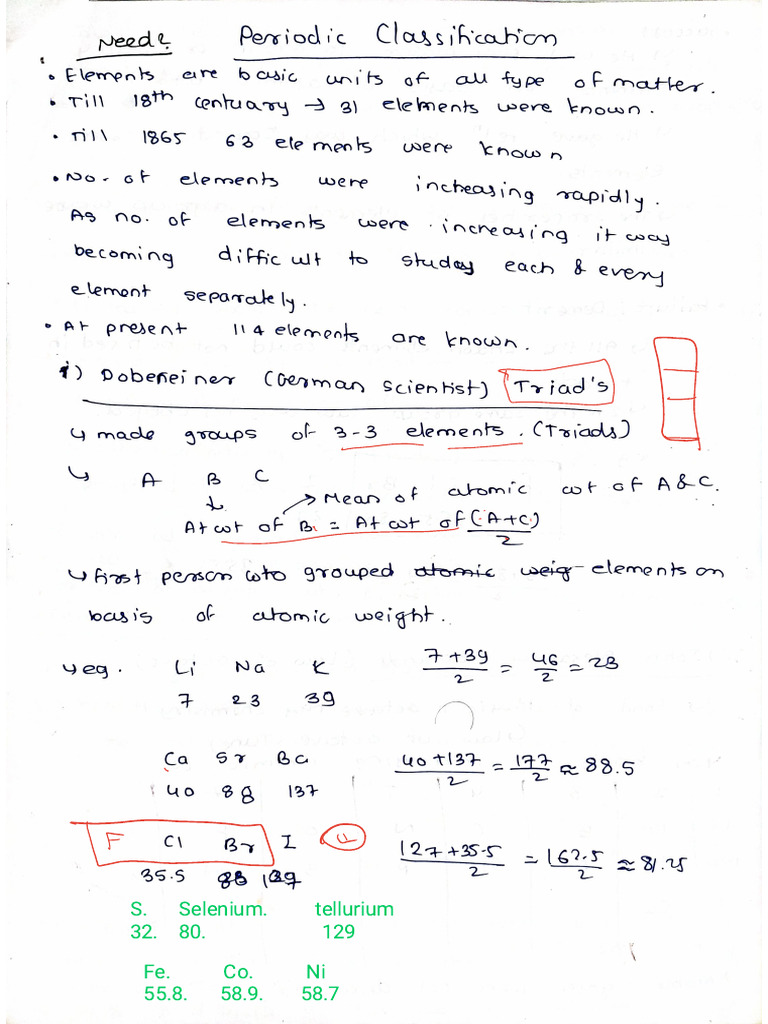 Need? Periodic Classification
• Elements are basic units of all type of matter.
• Till 18th centuary → 31 elements were known.
• Till 1865 63 elements were known
• No. of elements were increasing rapidly.
As no. of elements were increasing it was
becoming difficult to study each & every
element separately.
• At present 114 elements are known.
i) Dobereiner (German Scientist) Triad's
↳ made groups of 3-3 elements. (Triads)
↳ A B C
↓ → Mean of atomic wt of A & C.
At wt of B = At wt of (A+C)
2
↳ first person who grouped atomic weig elements on
basis of atomic weight.
↳ eg. Li Na K 7+39/2 = 46/2 = 23
7 23 39
Ca Sr Ba 40+137/2 = 177/2 ≈ 88.5
40 88 137
F Cl Br I 127+35.5/2 = 162.5/2 ≈ 81.25
35.5
S. Selenium. tellurium
32. 80. 129
Fe. Co. Ni
55.8. 58.9. 58.7